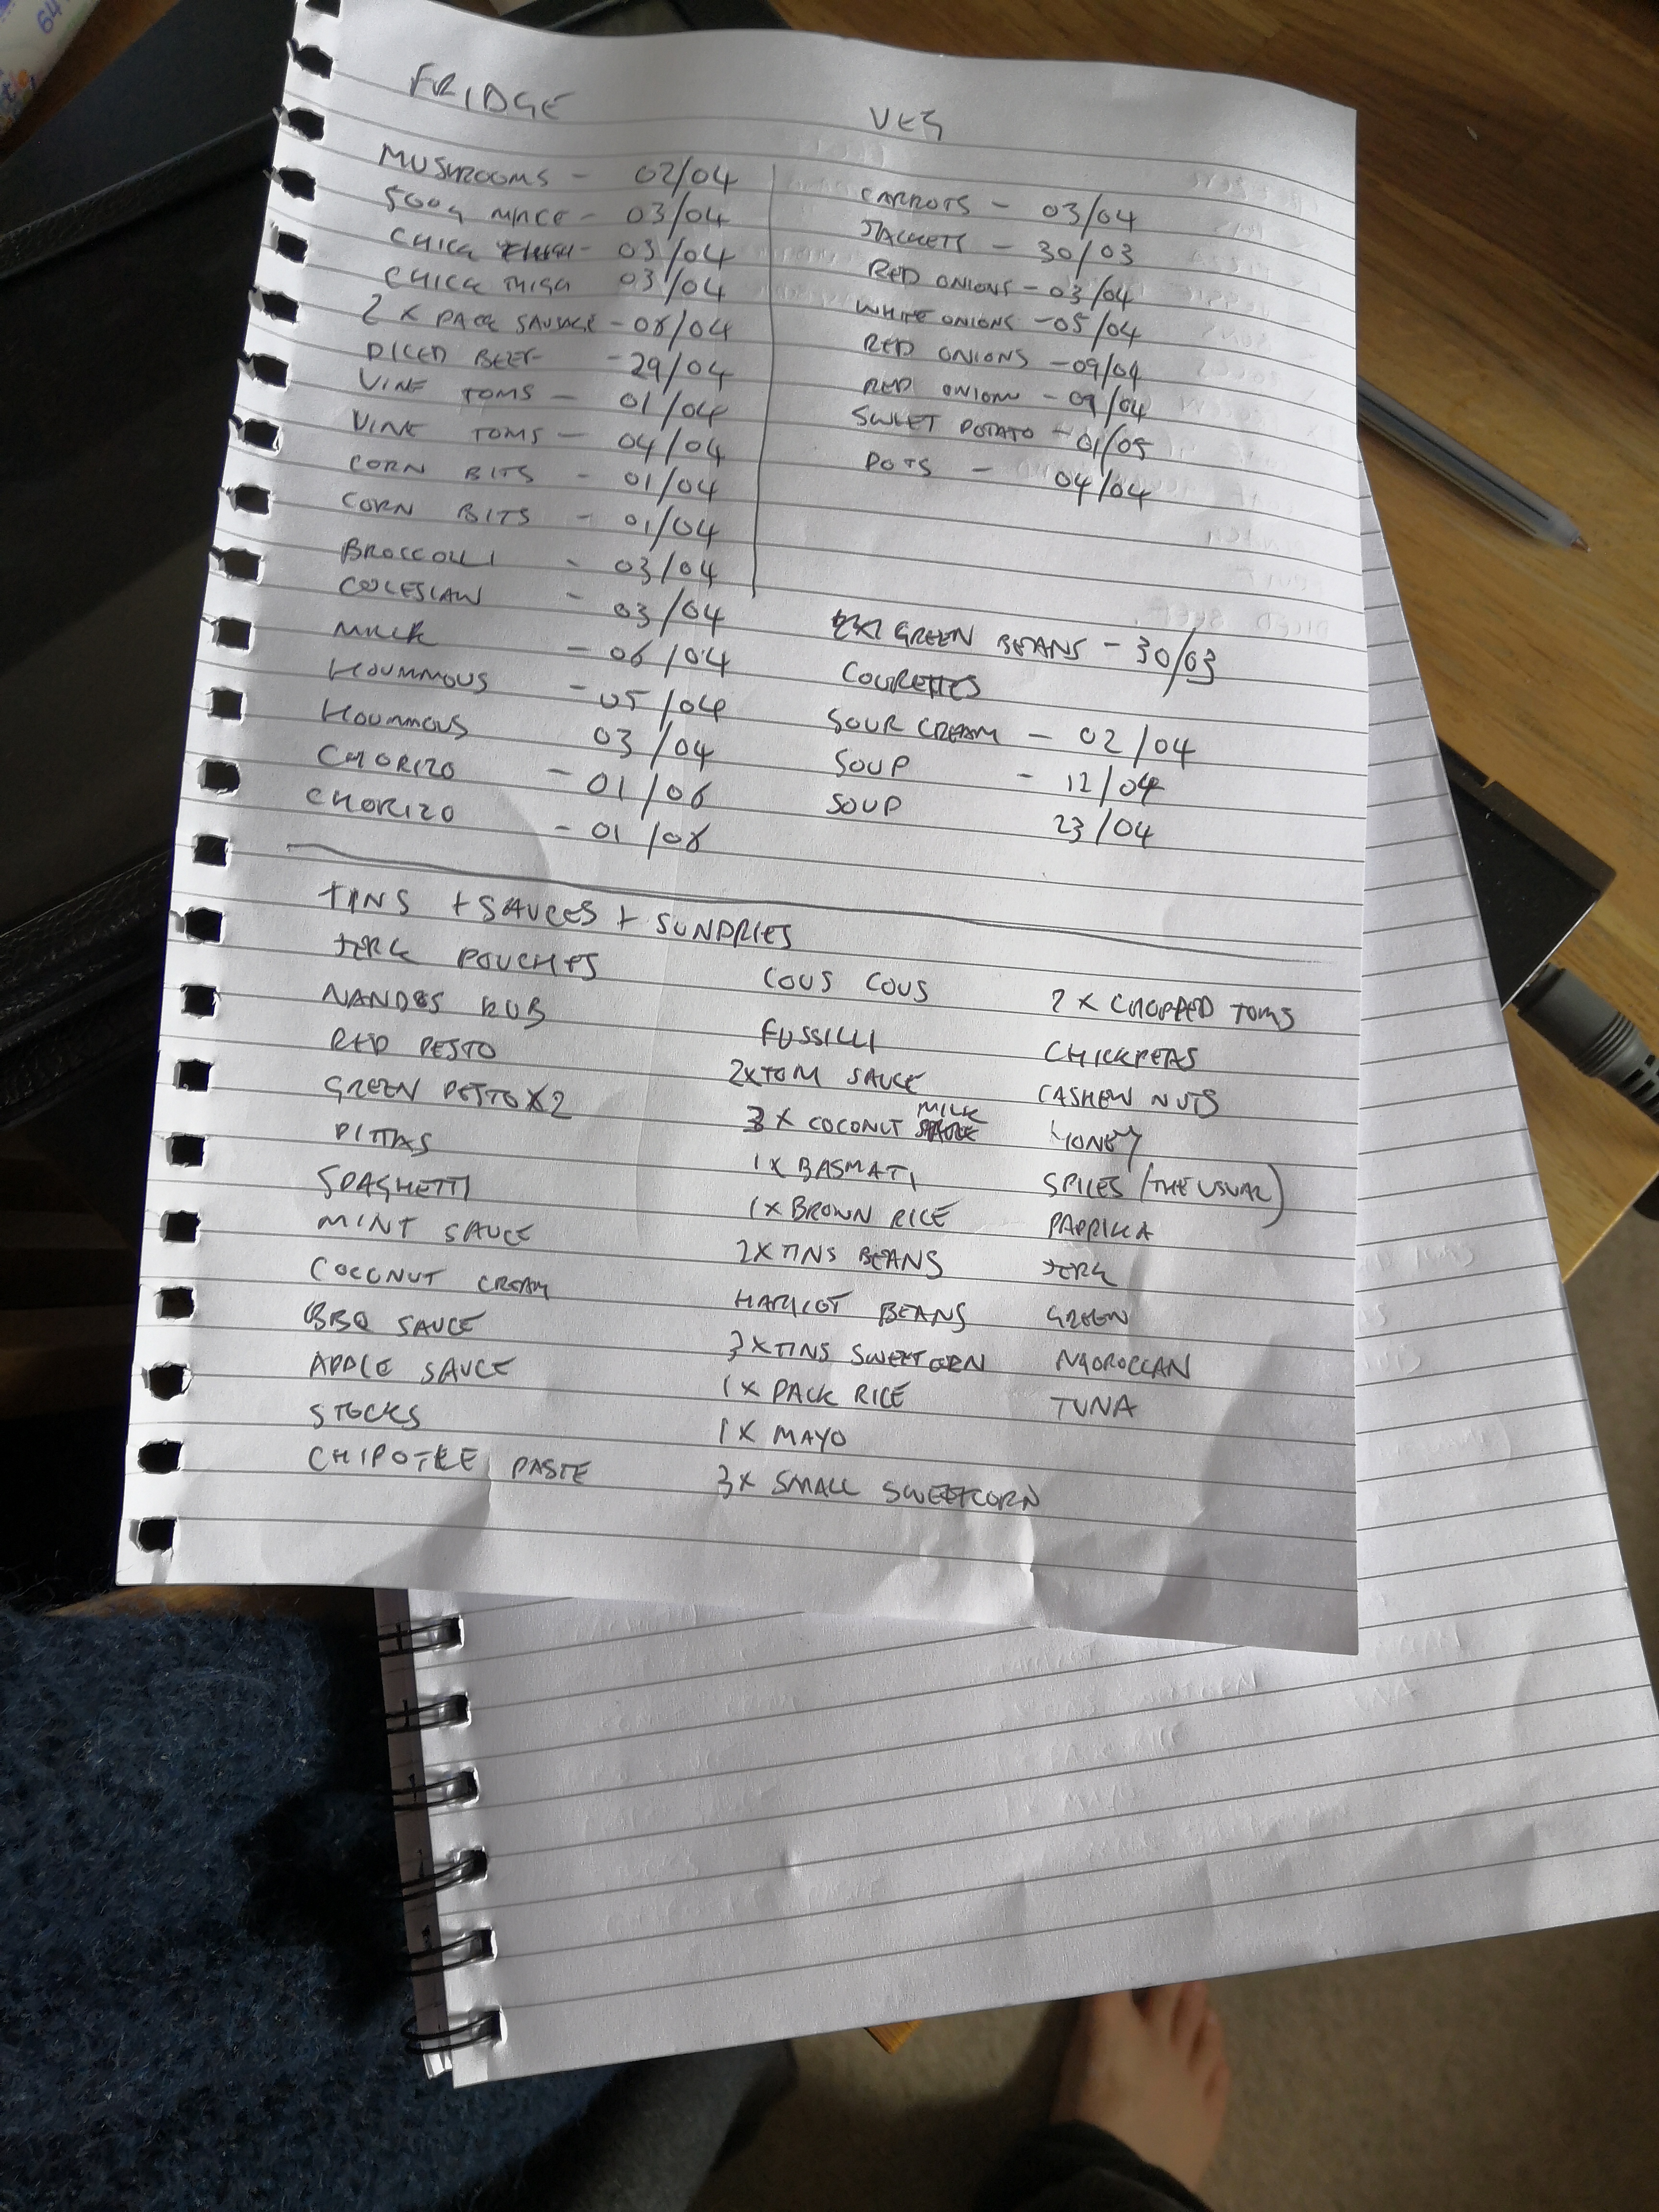 FRIDGE
MUSHROOMS - 02/04
500g MINCE - 03/04
CHICK THIGH - 03/04
CHICK THIGH 03/04
2 X PACK SAUSAGE - 08/04
DICED BEEF - 29/04
VINE TOMS - 01/04
VINE TOMS - 04/04
CORN BITS - 01/04
CORN BITS - 01/04
BROCCOLLI - 03/04
COLESLAW - 03/04
MILK - 06/04
HOUMMOUS - 05/04
HOUMMOUS 03/04
CHORIZO - 01/06
CHORIZO - 01/08
VEG
CARROTS - 03/04
JACKETS - 30/03
RED ONIONS - 03/04
WHITE ONIONS - 05/04
RED ONIONS - 09/04
RED ONION - 09/04
SWEET POTATO - 01/05
POTS - 04/04
GREEN BEANS - 30/03
COURETTES
SOUR CREAM - 02/04
SOUP - 12/04
SOUP 23/04
TINS + SAUCES + SUNDRIES
JERK POUCHES
NANDOS RUB
RED PESTO
GREEN PESTO X2
PITTAS
SPAGHETTI
MINT SAUCE
COCONUT CREAM
BBQ SAUCE
APPLE SAUCE
STOCKS
CHIPOTLE PASTE
COUS COUS
FUSSILLI
2X TOM SAUCE
3 X COCONUT MILK
1X BASMATI
1X BROWN RICE
2X TINS BEANS
HARICOT BEANS
3X TINS SWEETCORN
1X PACK RICE
1X MAYO
3X SMALL SWEETCORN
2 X CHOPPED TOMS
CHICKPEAS
CASHEW NUTS
HONEY
SPICES (THE USUAL)
PAPRIKA
JERK
GREEN
MOROCCAN
TUNA